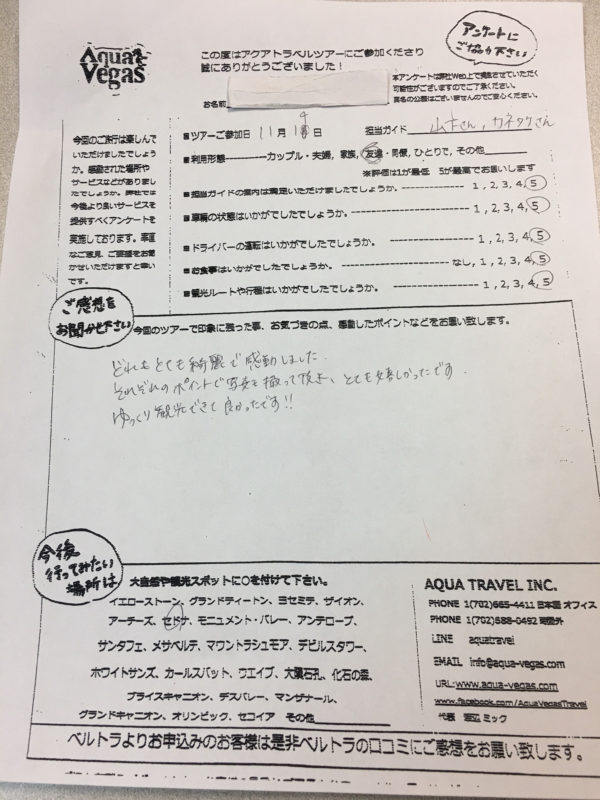 Aqua Vegas
この度はアクアトラベルツアーにご参加くださり
誠にありがとうございました！
アンケートに
ご協力下さい
本アンケートは弊社Web上で掲載させていただく
可能性がございますのでご了承ください。
実名の公表はございませんのでご安心ください。
お名前
今回のご旅行は楽しんで
いただけましたでしょう
か。感動された場所や
サービスなどがありまし
たでしょうか。弊社では
今後より良いサービスを
提供すべくアンケートを
実施しております。率直
なご意見、ご要望をお聞
かせいただけますと幸い
です。
■ツアーご参加日 11月14日 担当ガイド 山本さん、カネタケさん
■利用形態----------カップル・夫婦, 家族, 友達・同僚, ひとりで, その他
※評価は1が最低 5が最高でお願いします
■担当ガイドの案内は満足いただけましたでしょうか。 ---------- 1, 2, 3, 4, 5
■車輌の状態はいかがでしたでしょうか。 ---------- 1, 2, 3, 4, 5
■ドライバーの運転はいかがでしたでしょうか。 ---------- 1, 2, 3, 4, 5
■お食事はいかがでしたでしょうか。 ---------- なし, 1, 2, 3, 4, 5
■観光ルートや行程はいかがでしたでしょうか。 ---------- 1, 2, 3, 4, 5
ご感想を
お聞かせ下さい
今回のツアーで印象に残った事、お気づきの点、感動したポイントなどをお願い致します。
どれもとても綺麗で感動しました。
それぞれのポイントで写真を撮って頂き、とても嬉しかったです。
ゆっくり観光できて良かったです!!
今後
行ってみたい
場所は
大自然や観光スポットに○を付けて下さい。
イエローストーン、グランドティートン、ヨセミテ、ザイオン、
アーチーズ、セドナ、モニュメント・バレー、アンテロープ、
サンタフェ、メサベルテ、マウントラシュモア、デビルスタワー、
ホワイトサンズ、カールスバット、ウエイブ、大隕石孔、化石の森、
ブライスキャニオン、デスバレー、マンザナール、
グランドキャニオン、オリンピック、セコイア その他
AQUA TRAVEL INC.
PHONE 1(702)665-4411 日本語 オフィス
PHONE 1(702)688-0492 時間外
LINE aquatravel
EMAIL info@aqua-vegas.com
URL:www.aqua-vegas.com
www.facebook.com/AquaVegasTravel
代表 渡辺 ミック
ベルトラよりお申込みのお客様は是非ベルトラの口コミにご感想をお願い致します。